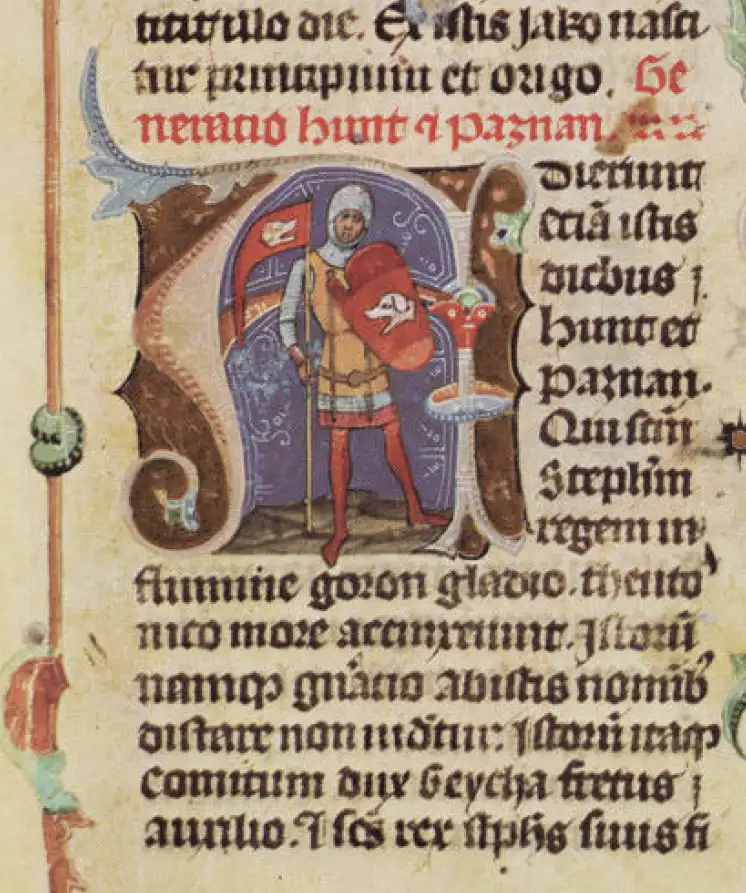 illo die. Ex istis Jako nasci
tur principium et origo. Ge
neratio hunt ⁊ paznan.
A dierunt
eciā istis
diebus ⁊
hunt et
paznan.
Qui scm̄
Stephm̄
regem in
flumine goron gladio. theuto
nico more accinxerunt. Istorū
namqꝫ gn̄acio ab istis nomībꝰ
distare non uidētur. Istorū itaqꝫ
comitum dux Geycha fretus ⁊
auxilio. ⁊ scs rex stph̄s suus fi